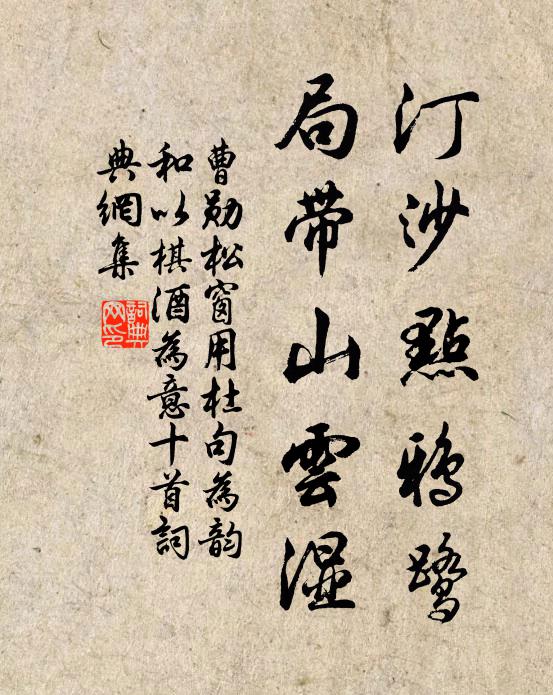 汀沙點鴉鷺
局帶山雲濕
曹勛松窗用杜句為韵
和以棋酒為意十首詞
典網集
詞典
网印